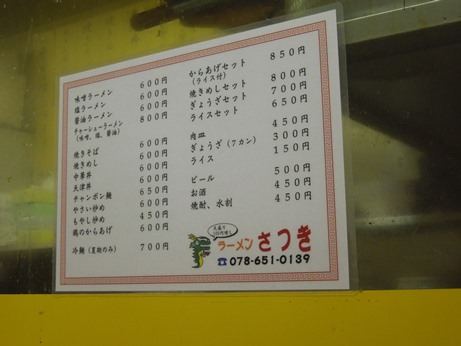 味噌ラーメン 600円
塩ラーメン 600円
醤油ラーメン 600円
チャーシューラーメン 800円
（味噌、塩、醤油）
焼きそば 600円
焼きめし 600円
中華丼 600円
天津丼 600円
チャンポン麺 650円
やさい炒め 600円
もやし炒め 450円
鶏のからあげ 600円
冷麺（夏期のみ） 700円
からあげセット 850円
（ライス付）
焼きめしセット 800円
ぎょうざセット 700円
ライスセット 650円
肉皿 450円
ぎょうざ（7カン） 300円
ライス 150円
ビール 500円
お酒 450円
焼酎、水割 450円
ラーメン さつき
☎078-651-0139